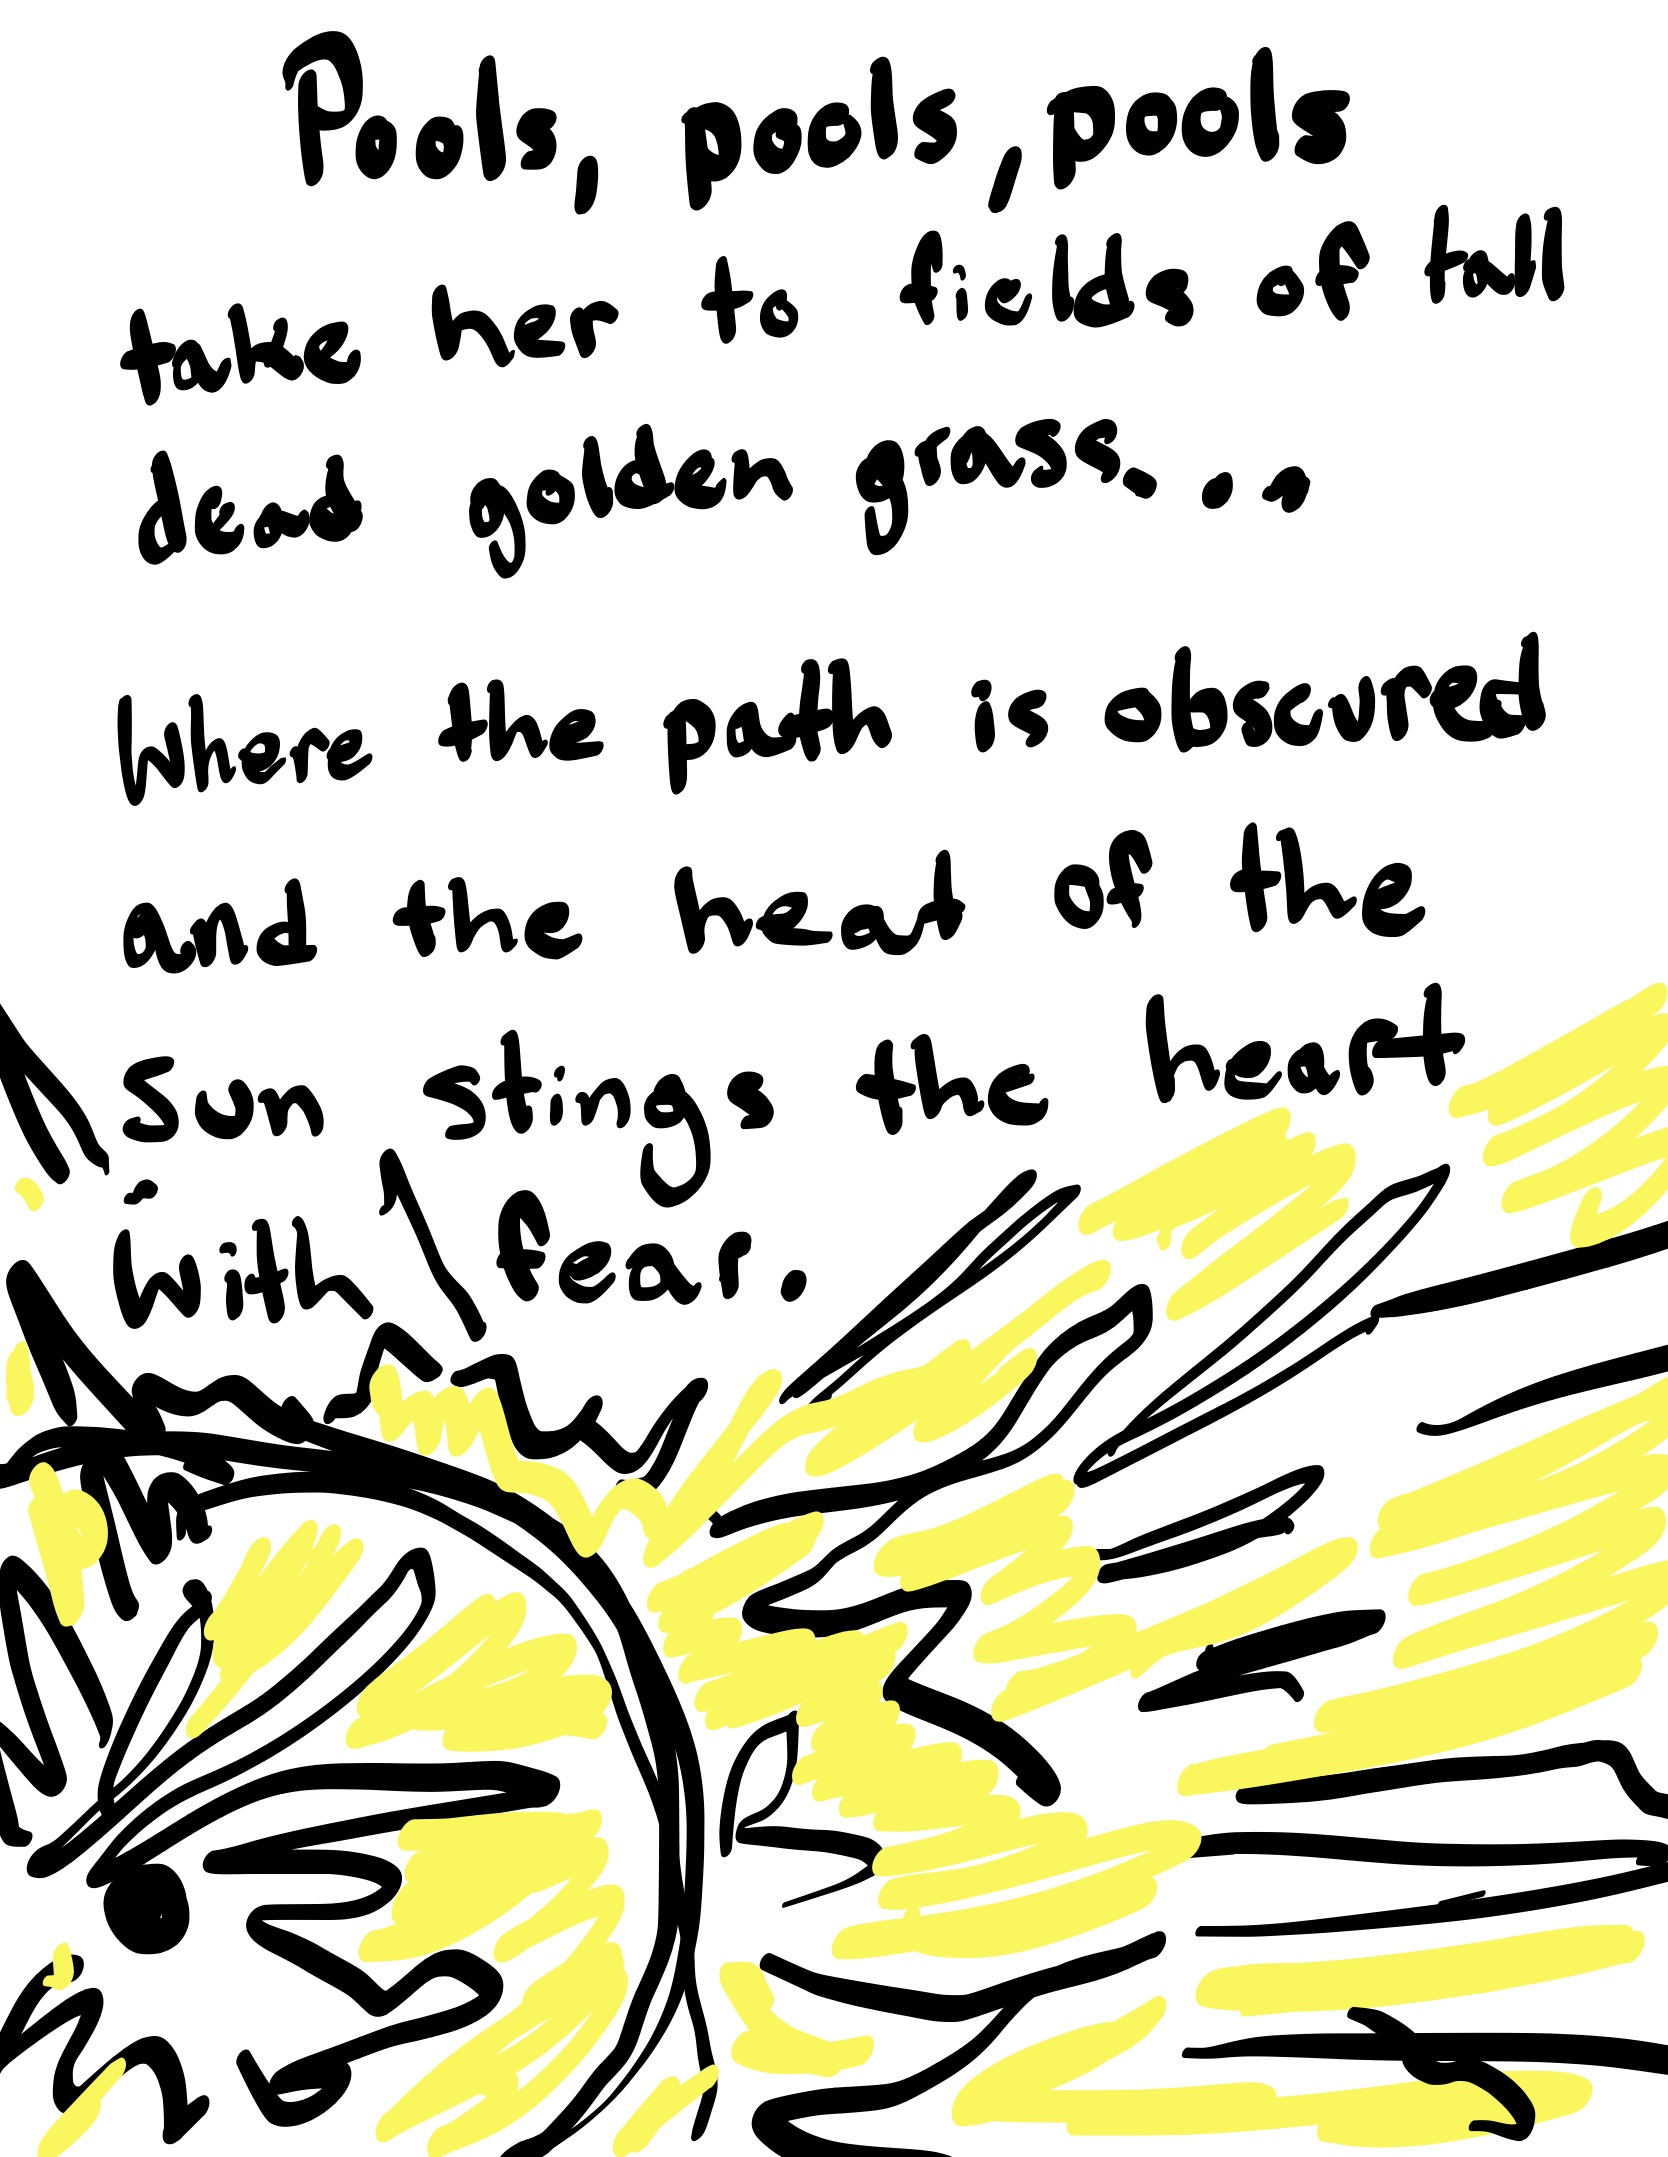 Pools, pools, pools
take her to fields of tall
dead golden grass...
Where the path is obscured
and the heat of the
sun stings the heart
with fear.